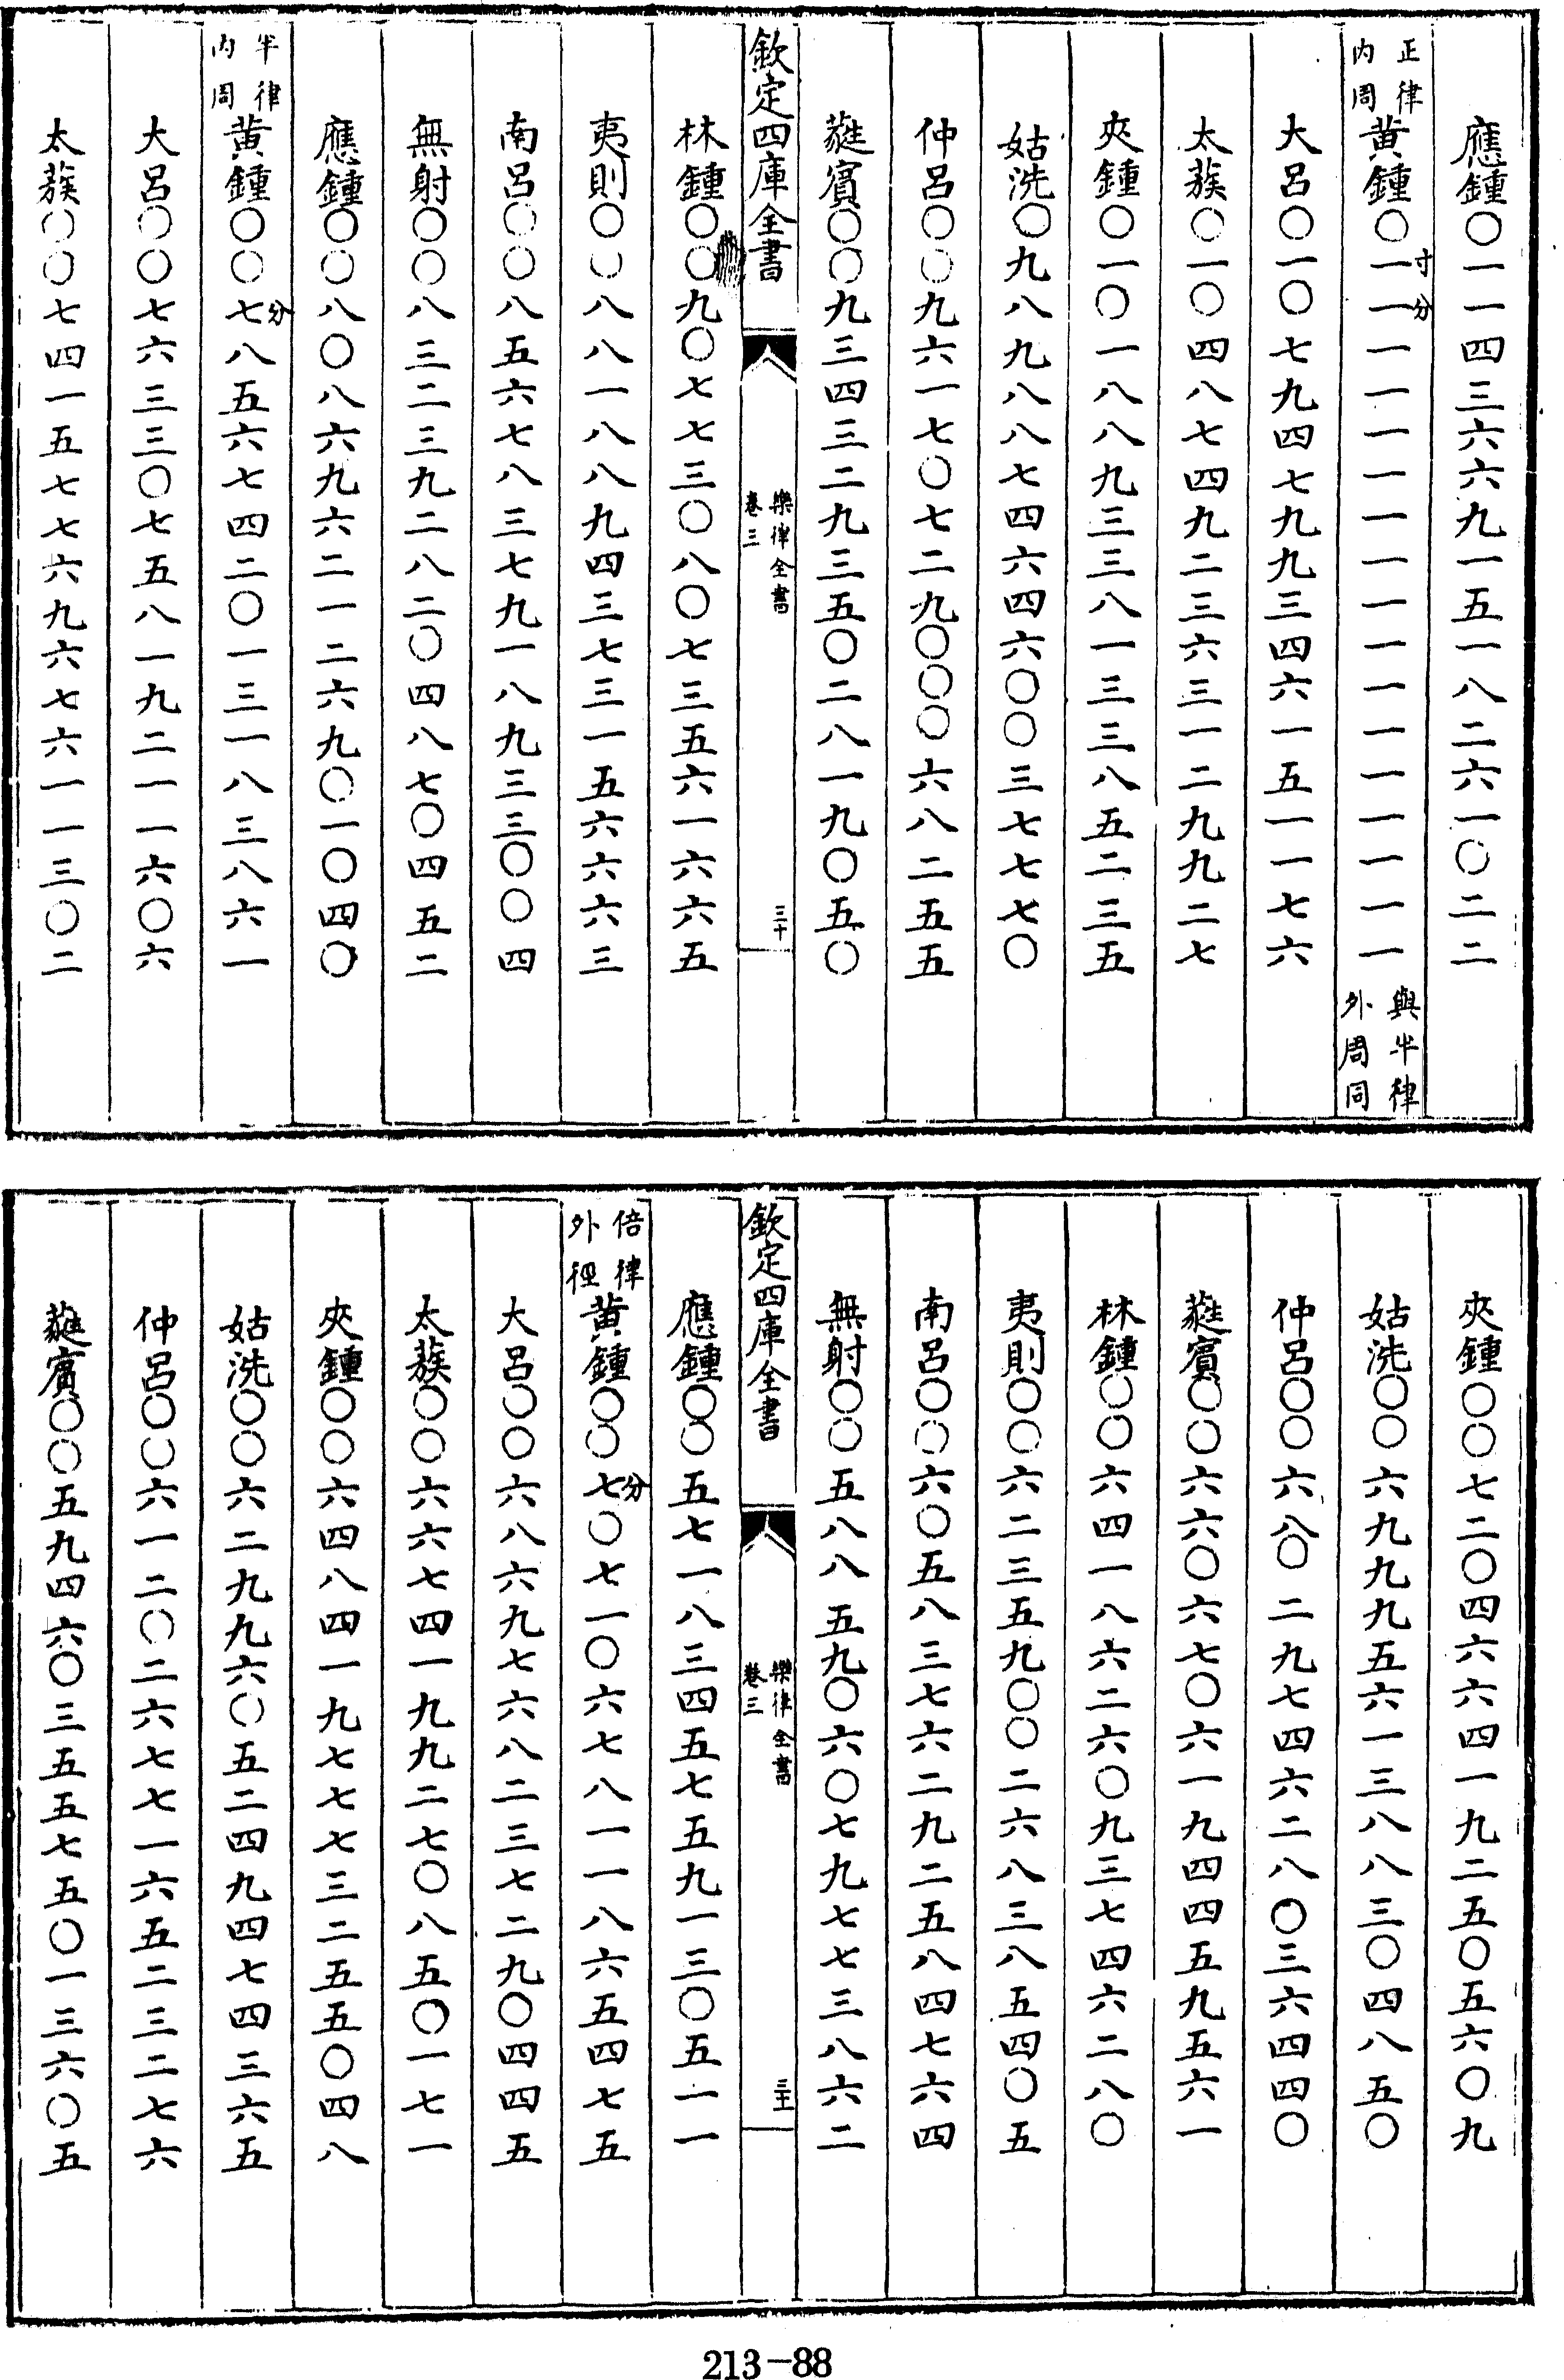 應鍾〇一一四三六六九一五一八二六一〇二二
正律內周黃鍾〇一寸一分一一一一一一一一一一一一一一一與半律外周同
大呂〇一〇七九四七九九三四六一五一一七六
太蔟〇一〇四八七四九二三六三一二九九二七
夾鍾〇一〇一八八九三三八一三三八五二三五
姑洗〇九八九八八七四六四六〇〇三七七七〇
仲呂〇〇九六一七〇七二九〇〇〇六八二五五
蕤賓〇〇九三四三二九三五〇二八一九〇五〇
欽定四庫全書 樂律全書卷三 三十
林鍾〇〇九〇七七三〇八〇七三五六一六六五
夷則〇〇八八一八八九四三七三一五六六六三
南呂〇〇八五六七八三七九一八九三三〇〇四
無射〇〇八三二三九二八二〇四八七〇四五二
應鍾〇〇八〇八六九六二一二六九〇一〇四〇
半律內周黃鍾〇〇七分八五六七四二〇一三一八三八六一
大呂〇〇七六三三〇七五八一九二一一六〇六
太蔟〇〇七四一五七七六九六七六一一三〇二
夾鍾〇〇七二〇四六六四一九二五〇五六〇九
姑洗〇〇六九九九五六一三八八三〇四八五〇
仲呂〇〇六八〇二九七四六二八〇三六四四〇
蕤賓〇〇六六〇六七〇六一九四四五九五六一
林鍾〇〇六四一八六二六〇九三七四六二八〇
夷則〇〇六二三五九〇〇二六八三八五四〇五
南呂〇〇六〇五八三七六二九二五八四七六四
無射〇〇五八八五九〇六〇七九七七三八六二
欽定四庫全書 樂律全書卷三 三十一
應鍾〇〇五七一八三四五七五九一三〇五一一
倍律外徑黃鍾〇〇七分〇七一〇六七八一一八六五四七五
大呂〇〇六八六九七六八二三七二九〇四四五
太蔟〇〇六六七四一九九二七〇八五〇一七一
夾鍾〇〇六四八四一九七七七三二五五〇四八
姑洗〇〇六二九九六〇五二四九四七四三六五
仲呂〇〇六一二〇二六七七一六五二三二七六
蕤賓〇〇五九四六〇三五五七五〇一三六〇五
213-88